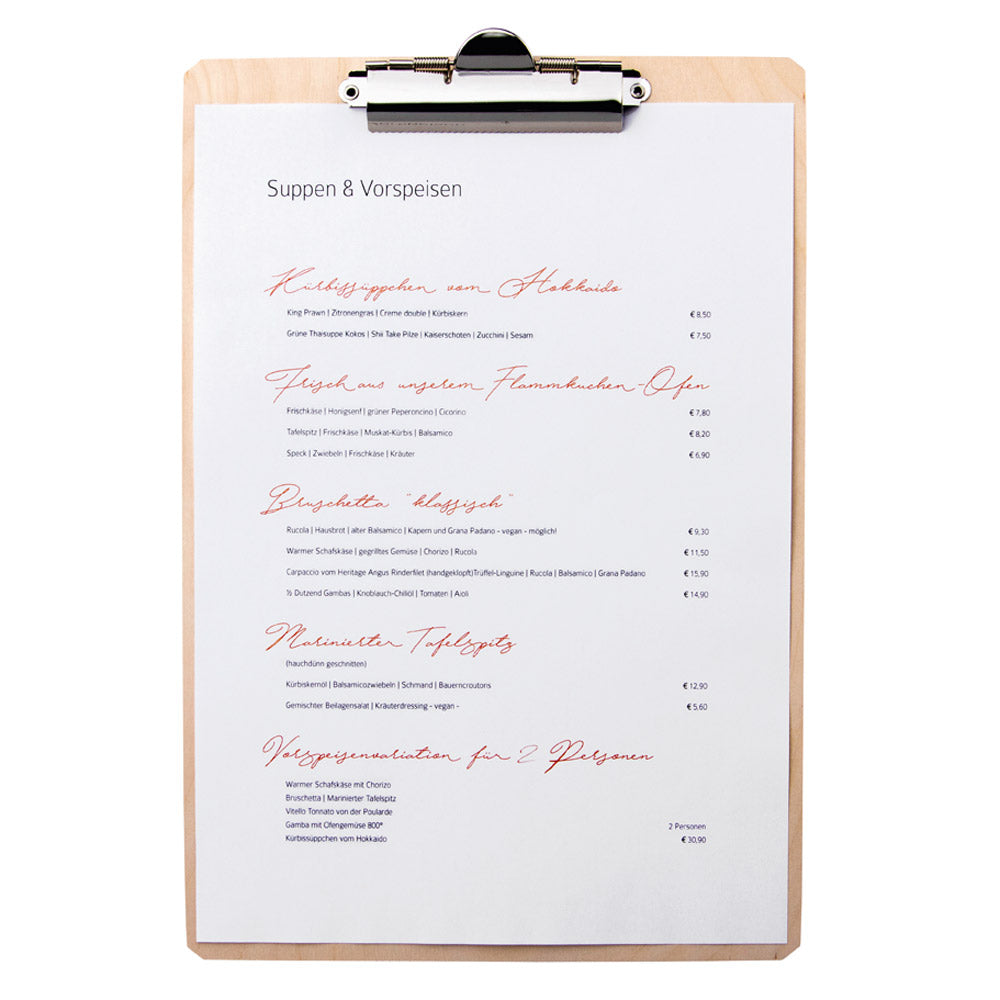 Suppen & Vorspeisen
Kürbissüppchen vom Hokkaido
King Prawn | Zitronengras | Creme double | Kürbiskern € 8,50
Grüne Thaisuppe Kokos | Shii Take Pilze | Kaiserschoten | Zucchini | Sesam € 7,50
Frisch aus unserem Flammkuchen-Ofen
Frischkäse | Honigsenf | grüner Peperoncino | Cicorino € 7,80
Tafelspitz | Frischkäse | Muskat-Kürbis | Balsamico € 8,20
Speck | Zwiebeln | Frischkäse | Kräuter € 6,90
Bruschetta "klassisch"
Rucola | Hausbrot | alter Balsamico | Kapern und Grana Padano - vegan - möglich! € 9,30
Warmer Schafskäse | gegrilltes Gemüse | Chorizo | Rucola € 11,50
Carpaccio vom Heritage Angus Rinderfilet (handgeklopft)Trüffel-Linguine | Rucola | Balsamico | Grana Padano € 15,90
½ Dutzend Gambas | Knoblauch-Chiliöl | Tomaten | Aioli € 14,90
Marinierter Tafelspitz
(hauchdünn geschnitten)
Kürbiskernöl | Balsamicozwiebeln | Schmand | Bauerncroutons € 12,90
Gemischter Beilagensalat | Kräuterdressing - vegan - € 5,60
Vorspeisenvariation für 2 Personen
Warmer Schafskäse mit Chorizo
Bruschetta | Marinierter Tafelspitz
Vitello Tonnato von der Poularde
Gamba mit Ofengemüse 800° 2 Personen
Kürbissüppchen vom Hokkaido € 30,90